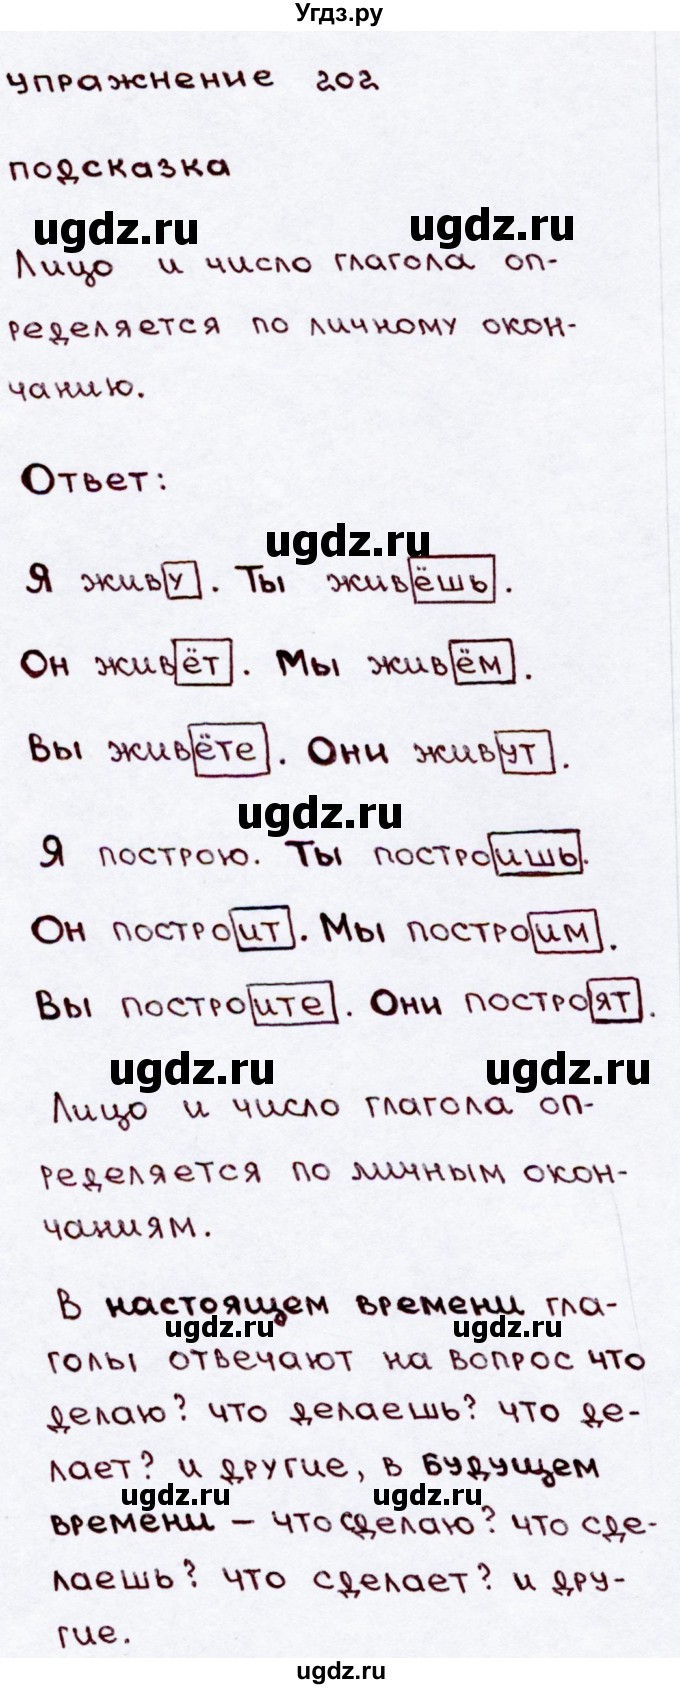 Угдз.ру
упражнение 202
подсказка
ugdz.ru ugdz.ru
Лицо и число глагола оп-
ределяется по личному окон-
чанию.
Ответ:
ugdz.ru
Я живу. Ты живёшь.
Он живёт. Мы живём.
Вы живёте. Они живут.
ugdz.ru
Я построю. Ты построишь.
Он построит. Мы построим.
Вы построите. Они построят.
ugdz.ru ugdz.ru
Лицо и число глагола оп-
ределяется по личным окон-
чаниям.
В настоящем времени гла-
ugdz.ru ugdz.ru
голы отвечают на вопрос что
делаю? что делаешь? что де-
лает? и другие, в будущем
ugdz.ru ugdz.ru
времени – что сделаю? что сде-
лаешь? что сделает? и дру-
гие.
ugdz.ru